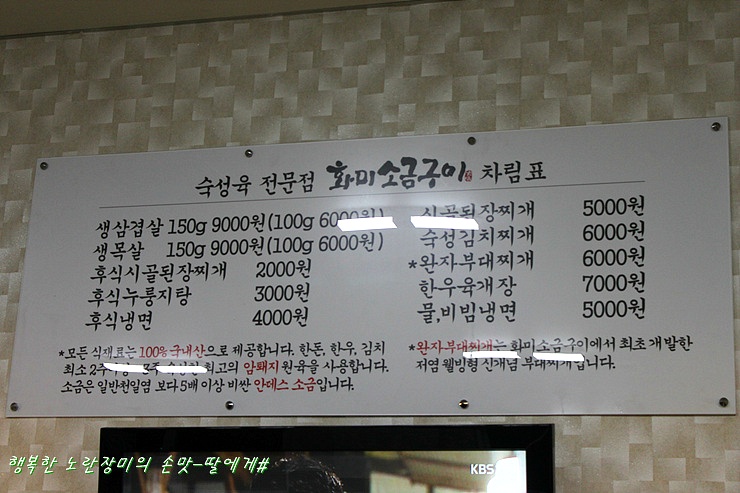 숙성육 전문점 화미소금구이 차림표
생삼겹살 150g 9000원(100g 6000원)
생목살 150g 9000원(100g 6000원)
후식시골된장찌개 2000원
후식누룽지탕 3000원
후식냉면 4000원
시골된장찌개 5000원
숙성김치찌개 6000원
*완자부대찌개 6000원
한우육개장 7000원
물,비빔냉면 5000원
*모든 식재료는 100% 국내산으로 제공합니다. 한돈, 한우, 김치
최소 최고의 암퇘지 원육을 사용합니다.
소금은 일반천일염 보다 5배 이상 비싼 안데스 소금입니다.
*완자부대찌개는 화미소금구이에서 최초 개발한
저염 웰빙형 신개념 부대찌개입니다.
KBS
행복한 노란장미의 손맛-딸에게#